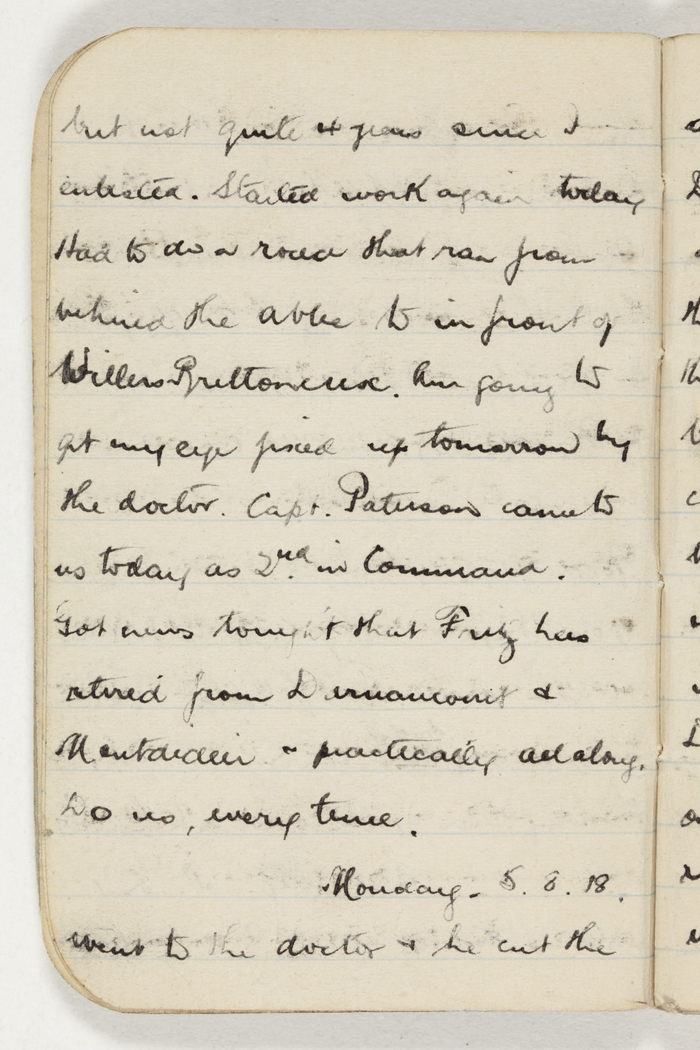 but not quite 4 years since I
enlisted. Started work again today
Had to do a road that ran from
behind the abbe to in front of
Willers Brettoneuse. Am going to
get my eye fixed up tomorrow by
the doctor. Capt. Paterson came to
us today as 2nd. in Command.
Got news tonight that Fritz has
retired from Dernancourt &
Montdidier & practically all along.
Do us, every time.
Monday. 5. 8. 18.
went to the doctor & he cut the